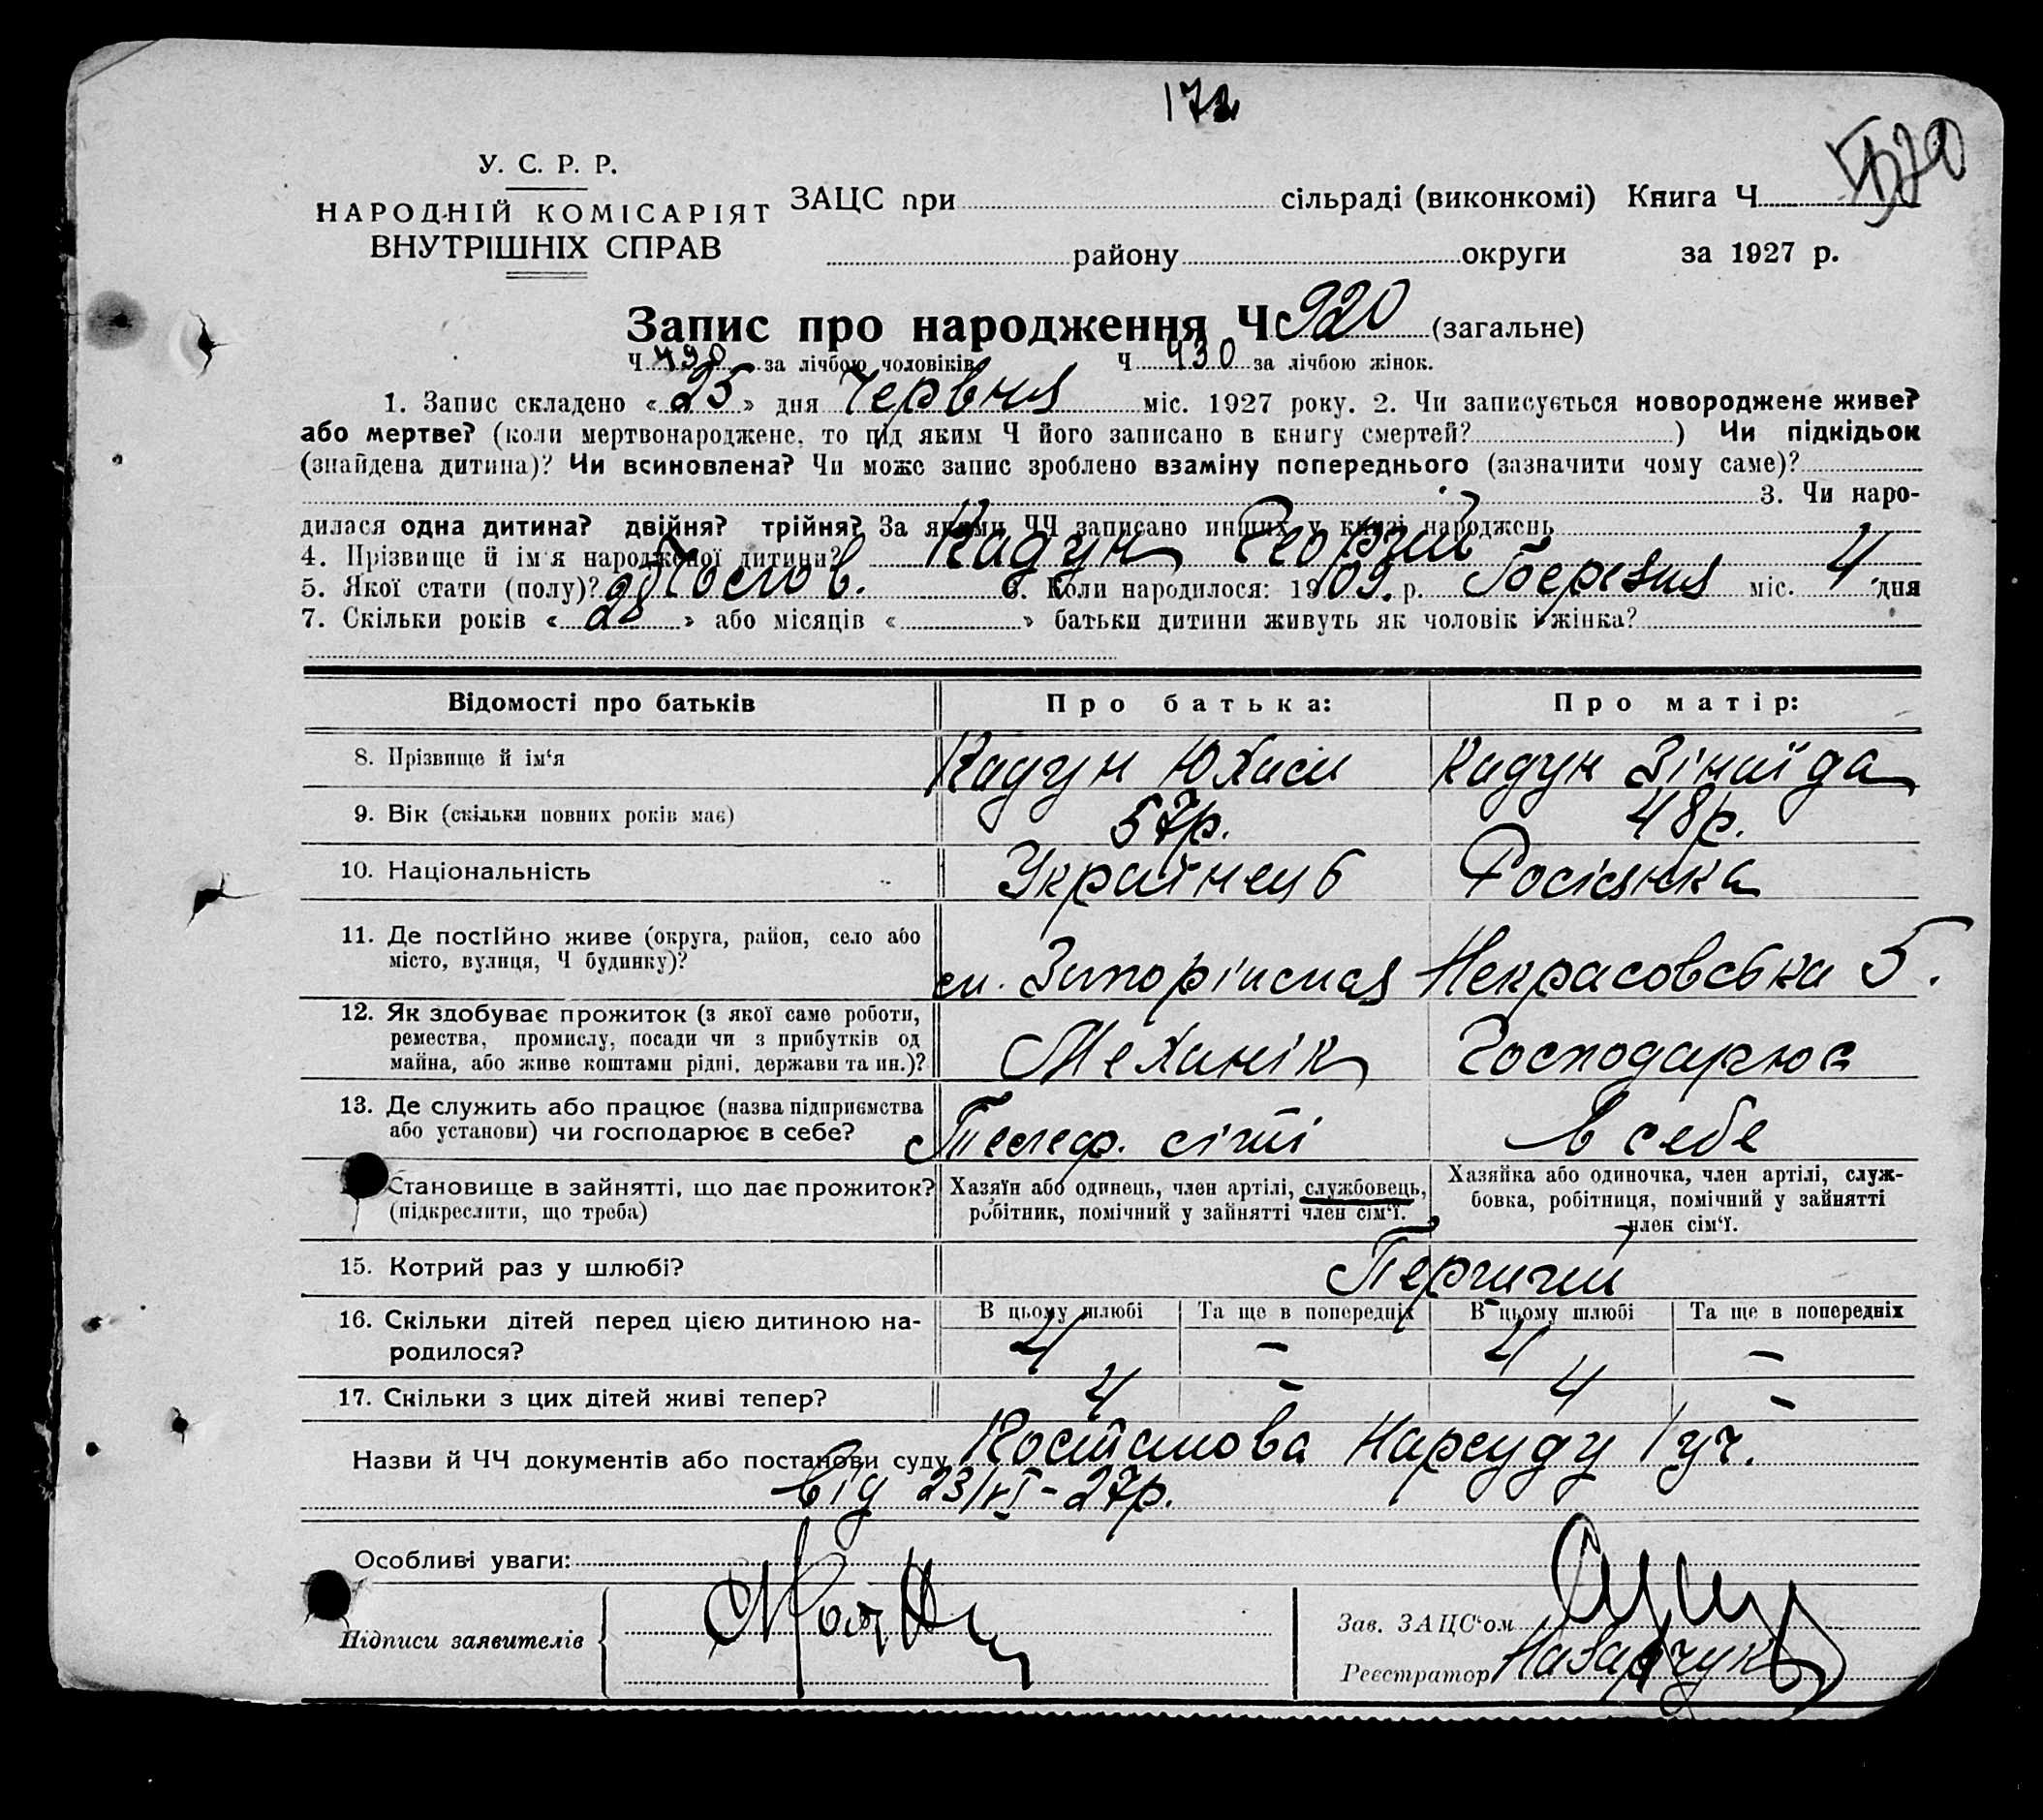 172
У. С. Р. Р.
НАРОДНІЙ КОМІСАРІЯТ
ВНУТРІШНІХ СПРАВ
ЗАЦС при сільраді (виконкомі) Книга Ч
району округи за 1927 р.
Запис про народження Ч 920 (загальне)
Ч 490 за лічбою чоловіків Ч 430 за лічбою жінок.
1. Запис складено « 25 » дня Червня міс. 1927 року. 2. Чи записується новороджене живе?
або мертве? (коли мертвонароджене, то під яким Ч його записано в книгу смертей? ) Чи підкідьок
(знайдена дитина)? Чи всиновлена? Чи може запис зроблено взаміну попереднього (зазначити чому саме)?
3. Чи наро-
дилася одна дитина? двійня? трійня? За якими ЧЧ записано инших у книзі народжень
4. Прізвище й ім'я народженої дитини? Кадун Георгий
5. Якої стати (полу)? Чолов. 6. Коли народилося: 1909. р. Березня міс. 4 дня
7. Скільки років « 28 » або місяців « » батьки дитини живуть як чоловік і жінка?
Відомості про батьків Про батька: Про матір:
8. Прізвище й ім'я Кадун Юхим Кадун Зінаїда
9. Вік (скільки повних років має) 57р. 48р.
10. Національність Українець Росіянка
11. Де постійно живе (округа, район, село або
місто, вулиця, Ч будинку)? Некрасовська 5.
12. Як здобуває прожиток (з якої саме роботи,
ремества, промислу, посади чи з прибутків од
майна, або живе коштами рідні, держави та ин.)? Механік Господарює
13. Де служить або працює (назва підприємства
або установи) чи господарює в себе? Телеф. сіті в себе
Становище в зайнятті, що дає прожиток?
(підкреслити, що треба)
Хазяїн або одинець, член артілі, службовець,
робітник, помічний у зайнятті член сім'ї.
Хазяйка або одиночка, член артілі, служ-
бовка, робітниця, помічний у зайнятті
член сім'ї.
15. Котрий раз у шлюбі? Перший
В цьому шлюбі Та ще в попередніх В цьому шлюбі Та ще в попередніх
16. Скільки дітей перед цією дитиною на-
родилося? 4 – 4 –
17. Скільки з цих дітей живі тепер? 4 – 4 –
Назви й ЧЧ документів або постанови суду Постанова Нарсуду 1 уч.
від 23/VI-27р.
Особливі уваги:
Підписи заявителів
Зав. ЗАЦС'ом
Реєстратор Назарчук